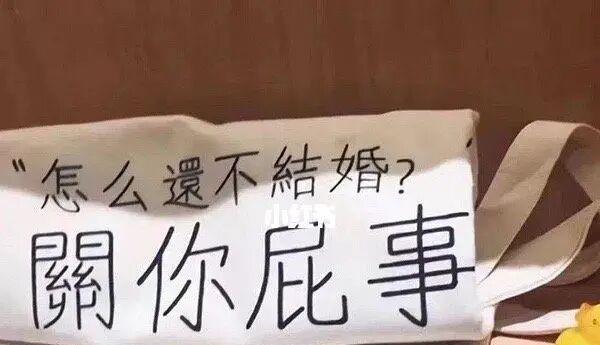 "怎么還不結婚?
小红书
關你屁事